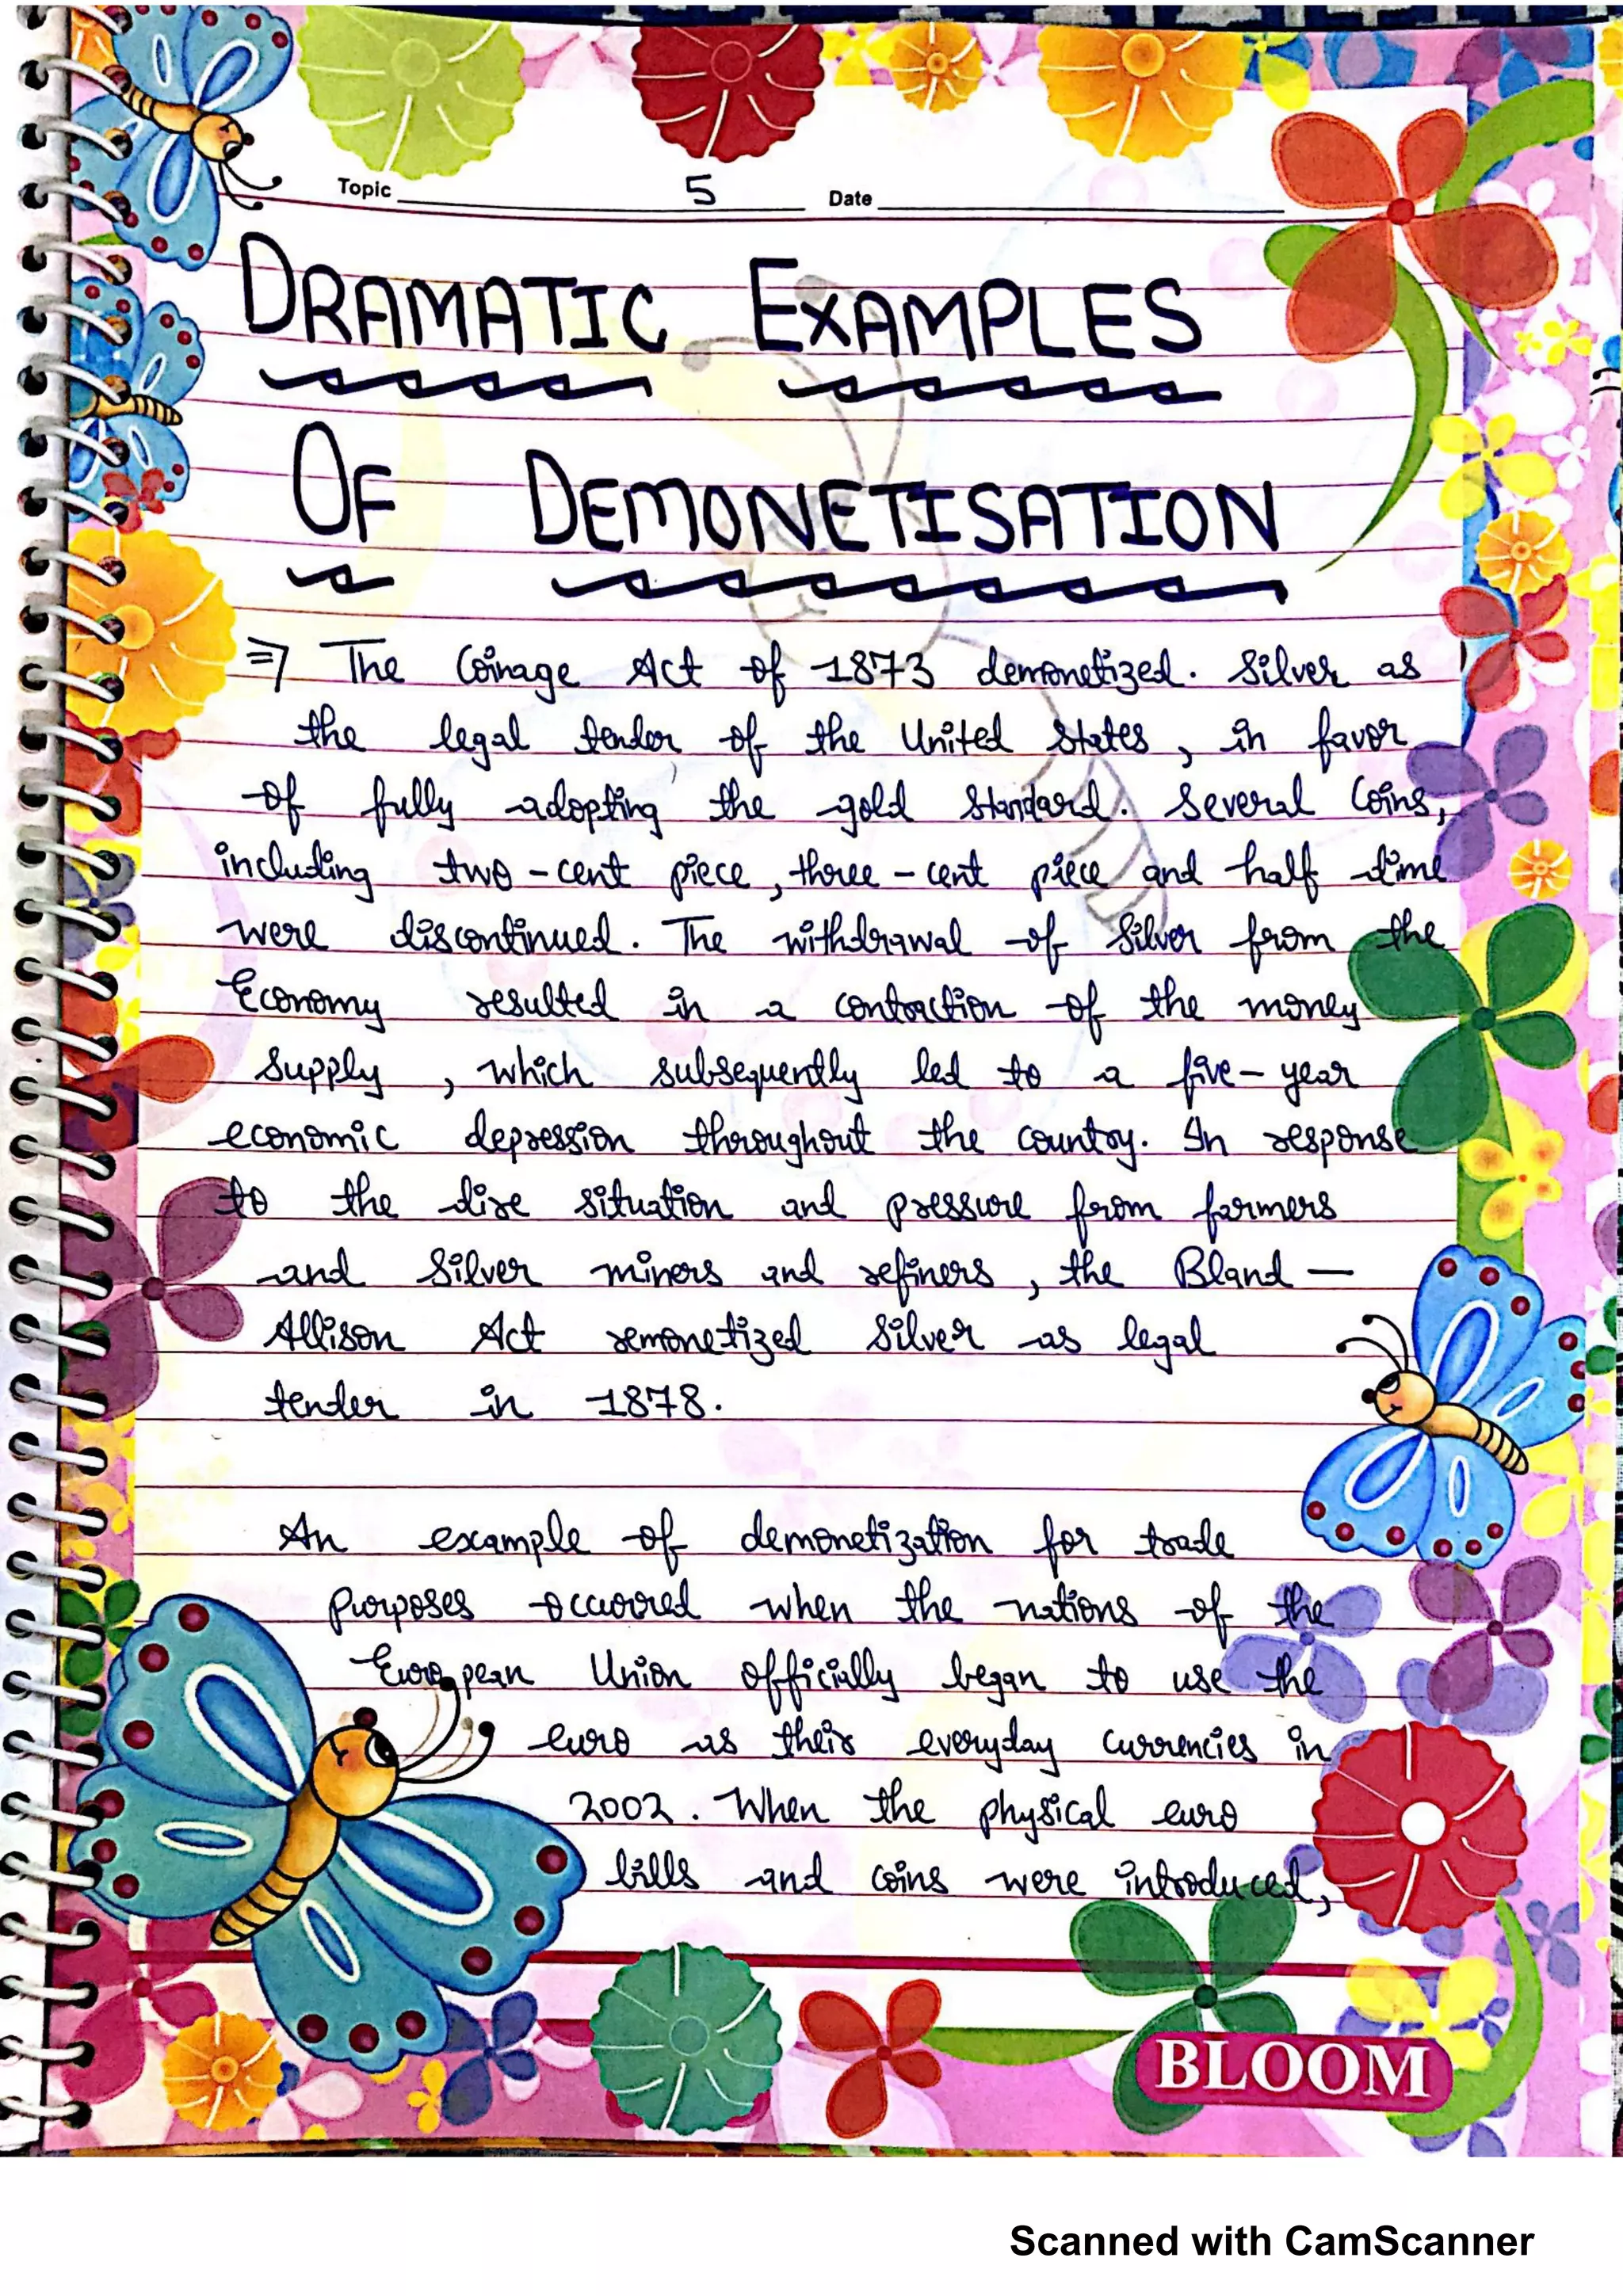 Topic 5 Date
DRAMATIC EXAMPLES
OF DEMONETISATION
=> The Coinage Act of 1873 demonetized. Silver as
the legal tender of the United States, in favor
of fully adopting the gold standard. Several Coins,
including two-cent piece, three-cent piece and half dime
were discontinued. The withdrawal of Silver from the
Economy resulted in a contraction of the money
supply, which subsequently led to a five-year
economic depression throughout the country. In response
to the dire situation and pressure from farmers
and Silver miners and refiners, the Bland-
Allison Act remonetized Silver as legal
tender in 1878.
An example of demonetization for trade
purposes occurred when the nations of the
European Union officially began to use the
euro as their everyday currencies in
2002. When the physical euro
bills and coins were introduced,
BLOOM
Scanned with CamScanner